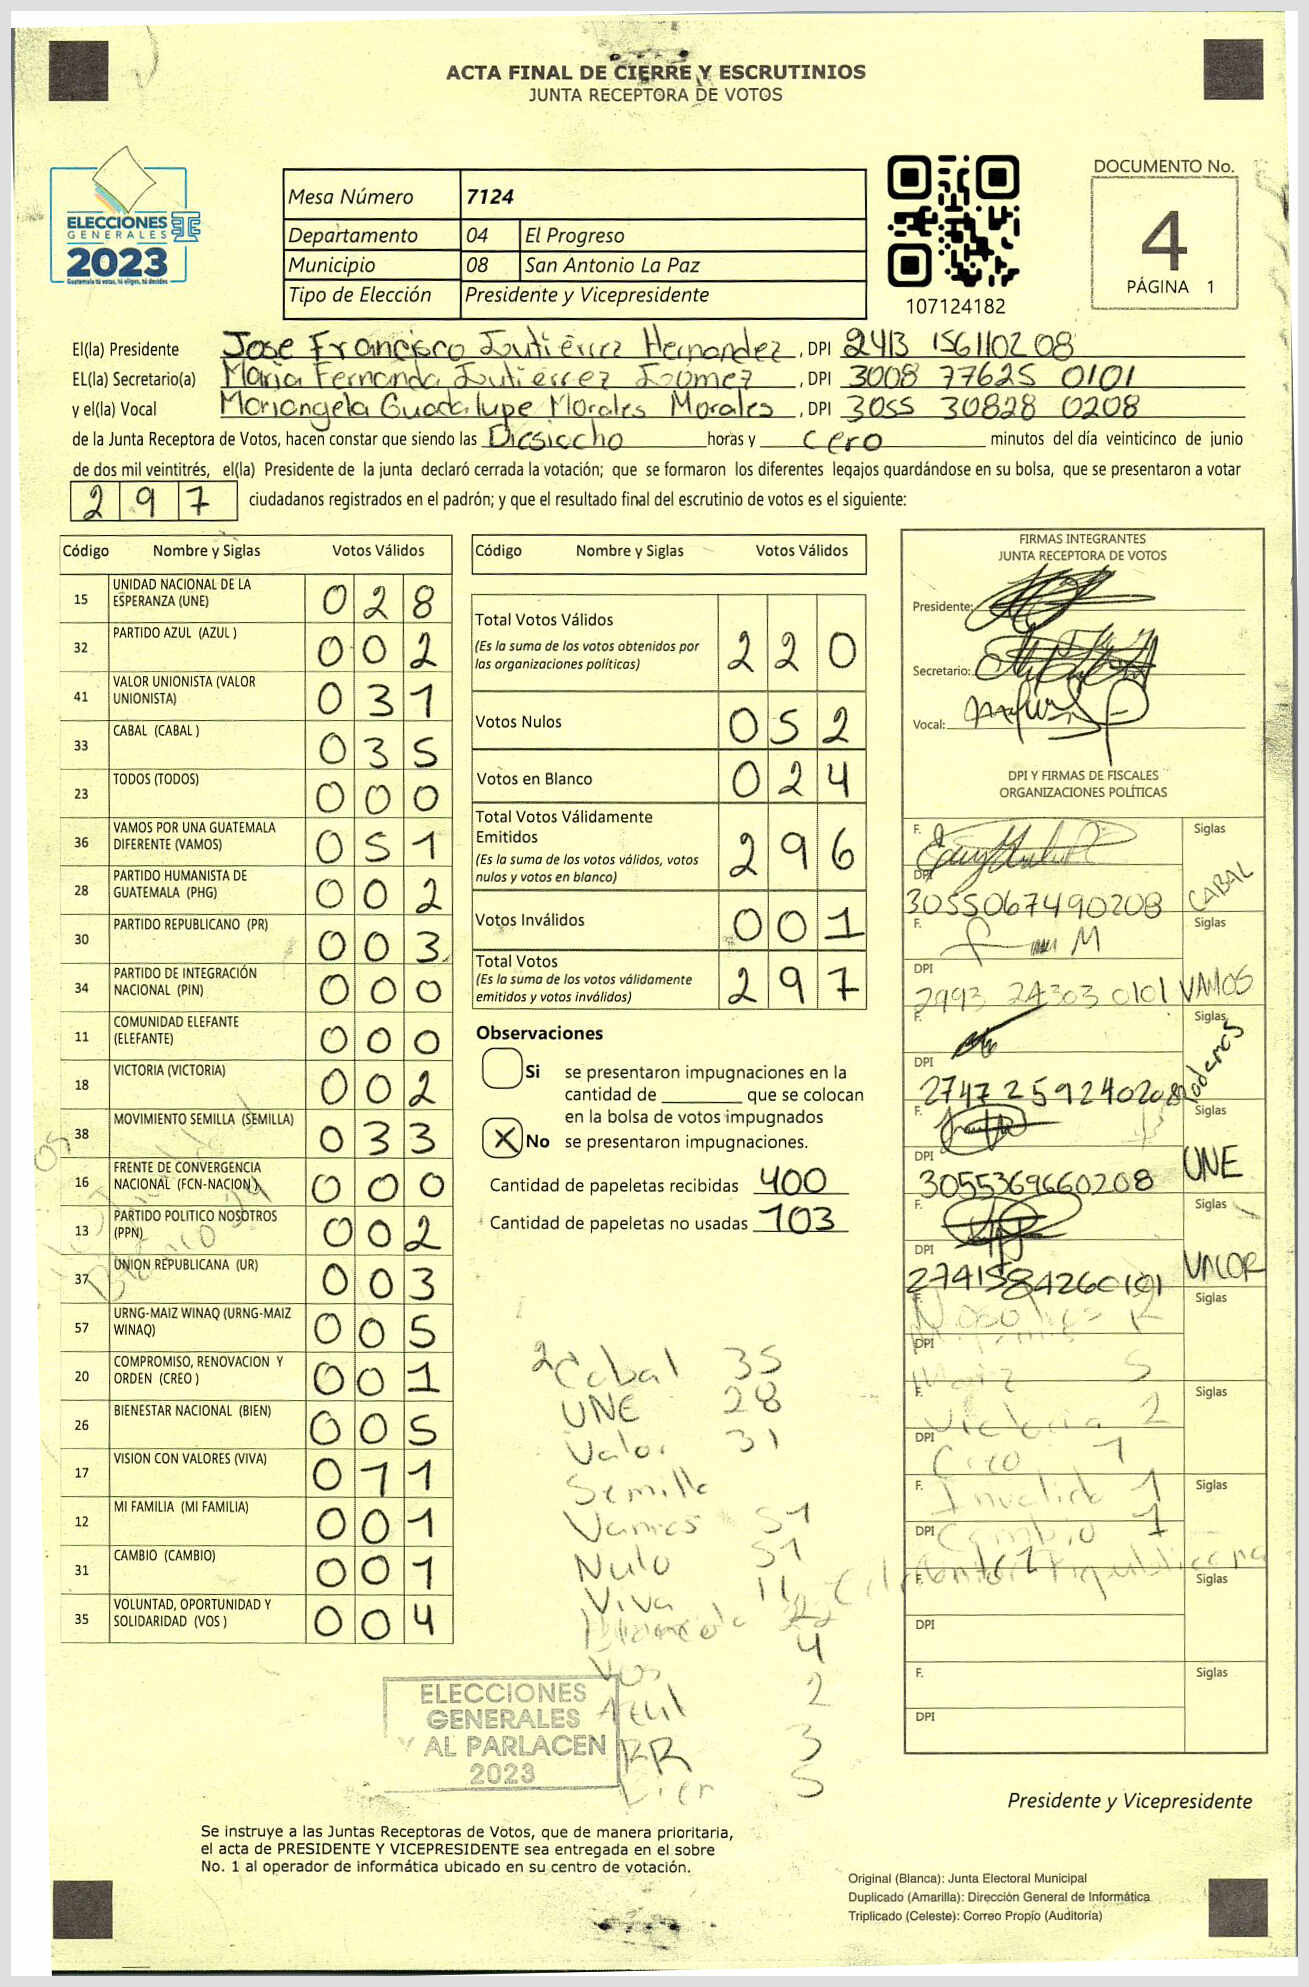 ACTA FINAL DE CIERRE Y ESCRUTINIOS
JUNTA RECEPTORA DE VOTOS
ELECCIONES
GENERALES
2023
Guatemala tú votas, tú eliges, tú decides
Mesa Número 7124
Departamento 04 El Progreso
Municipio 08 San Antonio La Paz
Tipo de Elección Presidente y Vicepresidente
107124182
DOCUMENTO No.
4
PÁGINA 1
El(la) Presidente Jose Francisco Gutiérrez Hernandez, DPI 2413 15611 0208
EL(la) Secretario(a) Maria Fernanda Gutierrez Gómez, DPI 3008 77625 0101
y el(la) Vocal Mariangela Guadalupe Morales Morales, DPI 3055 30828 0208
de la Junta Receptora de Votos, hacen constar que siendo las Diesiocho horas y cero minutos del día veinticinco de junio
de dos mil veintitrés, el(la) Presidente de la junta declaró cerrada la votación; que se formaron los diferentes legajos guardándose en su bolsa, que se presentaron a votar
297 ciudadanos registrados en el padrón; y que el resultado final del escrutinio de votos es el siguiente:
Código Nombre y Siglas Votos Válidos
15 UNIDAD NACIONAL DE LA ESPERANZA (UNE) 028
32 PARTIDO AZUL (AZUL ) 002
41 VALOR UNIONISTA (VALOR UNIONISTA) 031
33 CABAL (CABAL ) 035
23 TODOS (TODOS) 000
36 VAMOS POR UNA GUATEMALA DIFERENTE (VAMOS) 051
28 PARTIDO HUMANISTA DE GUATEMALA (PHG) 002
30 PARTIDO REPUBLICANO (PR) 003
34 PARTIDO DE INTEGRACIÓN NACIONAL (PIN) 000
11 COMUNIDAD ELEFANTE (ELEFANTE) 000
18 VICTORIA (VICTORIA) 002
38 MOVIMIENTO SEMILLA (SEMILLA) 033
16 FRENTE DE CONVERGENCIA NACIONAL (FCN-NACION ) 000
13 PARTIDO POLITICO NOSOTROS (PPN) 002
37 UNION REPUBLICANA (UR) 003
57 URNG-MAIZ WINAQ (URNG-MAIZ WINAQ) 005
20 COMPROMISO, RENOVACION Y ORDEN (CREO ) 001
26 BIENESTAR NACIONAL (BIEN) 005
17 VISION CON VALORES (VIVA) 011
12 MI FAMILIA (MI FAMILIA) 001
31 CAMBIO (CAMBIO) 001
35 VOLUNTAD, OPORTUNIDAD Y SOLIDARIDAD (VOS ) 004
Código Nombre y Siglas Votos Válidos
Total Votos Válidos 220
(Es la suma de los votos obtenidos por
las organizaciones políticas)
Votos Nulos 052
Votos en Blanco 024
Total Votos Válidamente
Emitidos 296
(Es la suma de los votos válidos, votos
nulos y votos en blanco)
Votos Inválidos 001
Total Votos 297
(Es la suma de los votos válidamente
emitidos y votos inválidos)
Observaciones
Si se presentaron impugnaciones en la
cantidad de ________ que se colocan
en la bolsa de votos impugnados
X No se presentaron impugnaciones.
Cantidad de papeletas recibidas 400
Cantidad de papeletas no usadas 103
Cabal 35
UNE 28
Valor 31
Semilla
Vamos 51
Nulo 51
Viva 11
Blanco 22
Vos 4
Azul 2
PR 3
Bien 5
FIRMAS INTEGRANTES
JUNTA RECEPTORA DE VOTOS
Presidente:
Secretario:
Vocal:
DPI Y FIRMAS DE FISCALES
ORGANIZACIONES POLÍTICAS
F. Siglas
DPI
3055067490208 CABAL
F. Siglas
DPI
2993 24303 0101 VAMOS
F. Siglas
DPI
2747 25924 0208 Poderos
F. Siglas
DPI
3055369660208 UNE
F. Siglas
DPI
2741584260101 VALOR
F. Siglas
Nosotros 2
DPI
Maiz 5
F. Siglas
Victoria 2
DPI
Creo 1
F. Siglas
Invalido 1
DPI
Cambio 1
F. Siglas
DPI
F. Siglas
DPI
ELECCIONES
GENERALES
Y AL PARLACEN
2023
Presidente y Vicepresidente
Se instruye a las Juntas Receptoras de Votos, que de manera prioritaria,
el acta de PRESIDENTE Y VICEPRESIDENTE sea entregada en el sobre
No. 1 al operador de informática ubicado en su centro de votación.
Original (Blanca): Junta Electoral Municipal
Duplicado (Amarilla): Dirección General de Informática
Triplicado (Celeste): Correo Propio (Auditoria)